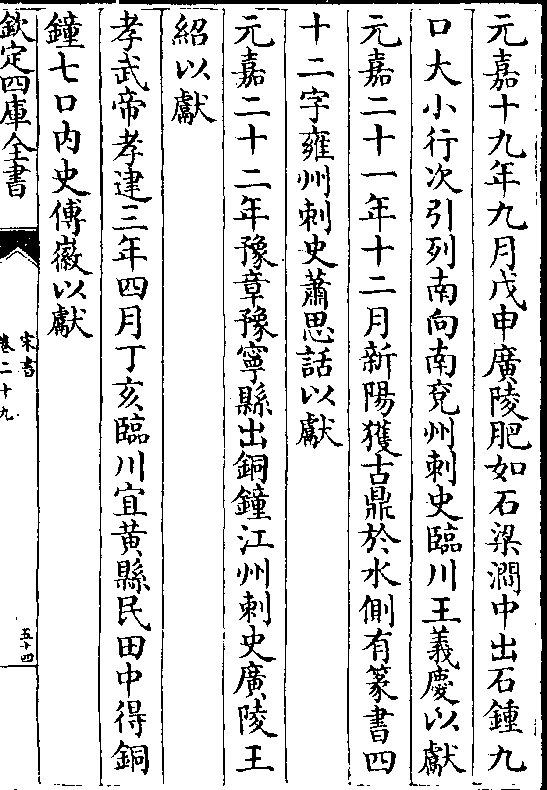 元嘉十九年九月戊申廣陵肥如石梁澗中出石鍾九
口大小行次引列南向南兗州刺史臨川王義慶以獻
元嘉二十一年十二月新陽獲古鼎於水側有篆書四
十二字雍州刺史蕭思話以獻
元嘉二十二年豫章豫寧縣出銅鐘江州刺史廣陵王
紹以獻
孝武帝孝建三年四月丁亥臨川宜黄縣民田中得銅
鐘七口内史傅徽以獻
欽定四庫全書
宋書
卷二十九
五十四